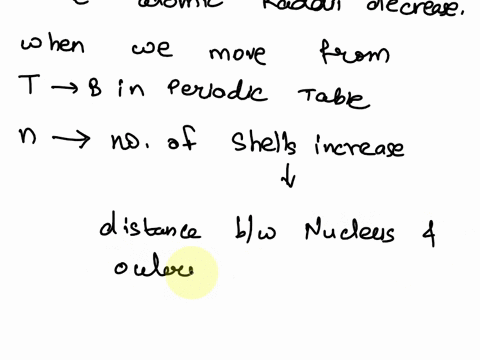 atomic Radau decrease.
when we move from
T → B in Periodic Table
n → no. of Shells increase
↓
distance b/w Nucleus &